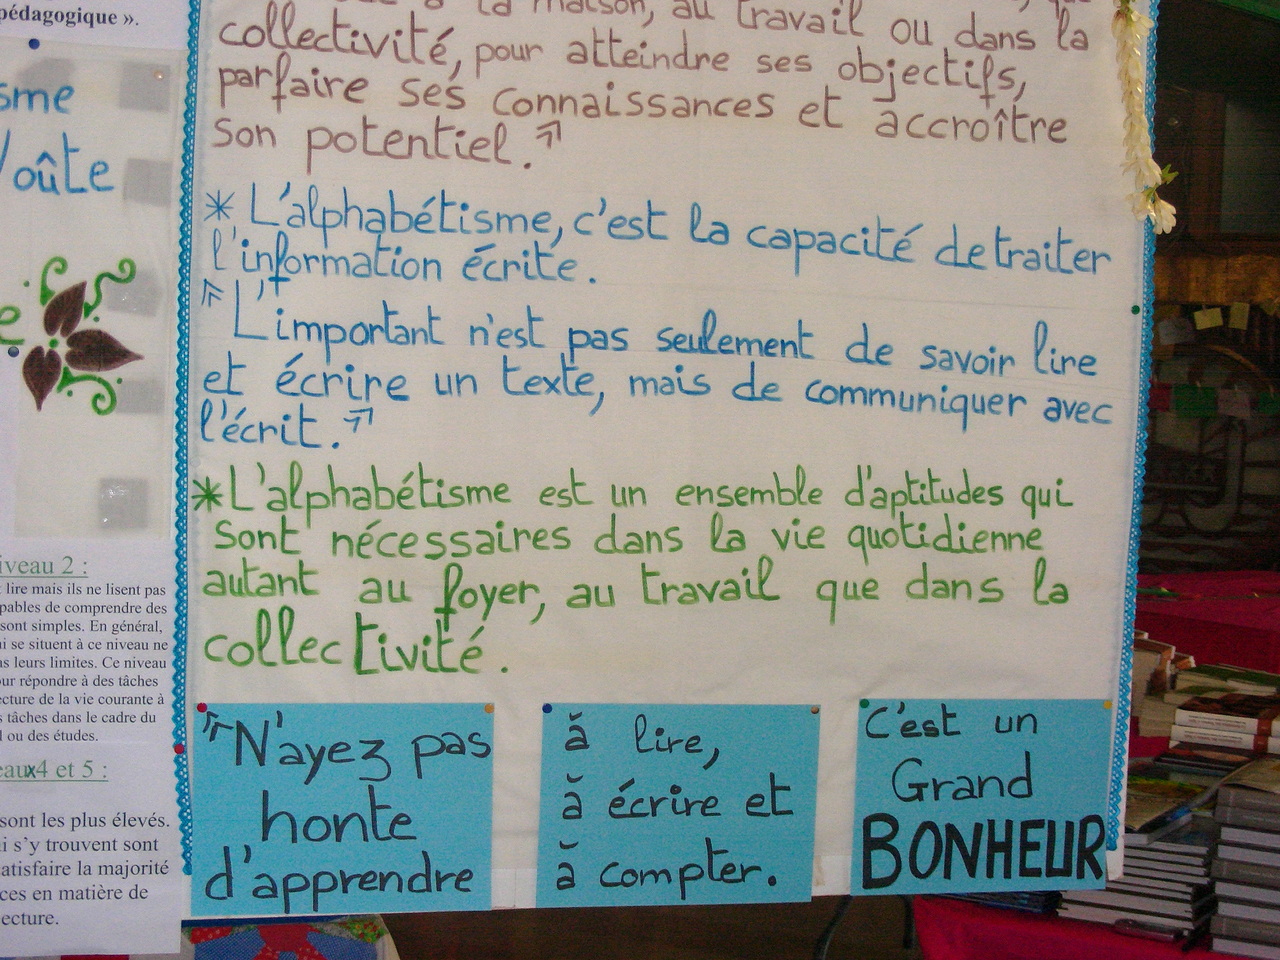 pédagogique ».
sme
Voûte
e
iveau 2 :
lire mais ils ne lisent pas
pables de comprendre des
sont simples. En général,
i se situent à ce niveau ne
s leurs limites. Ce niveau
ur répondre à des tâches
ecture de la vie courante à
s tâches dans le cadre du
l ou des études.
eaux4 et 5 :
sont les plus élevés.
i s'y trouvent sont
atisfaire la majorité
ces en matière de
ecture.
la maison, au travail ou dans la
collectivité, pour atteindre ses objectifs,
parfaire ses connaissances et accroître
son potentiel. »
* L'alphabétisme, c'est la capacité de traiter
l'information écrite.
« L'important n'est pas seulement de savoir lire
et écrire un texte, mais de communiquer avec
l'écrit. »
* L'alphabétisme est un ensemble d'aptitudes qui
sont nécessaires dans la vie quotidienne
autant au foyer, au travail que dans la
collectivité.
« N'ayez pas
honte
d'apprendre
à lire,
à écrire et
à compter.
C'est un
Grand
BONHEUR